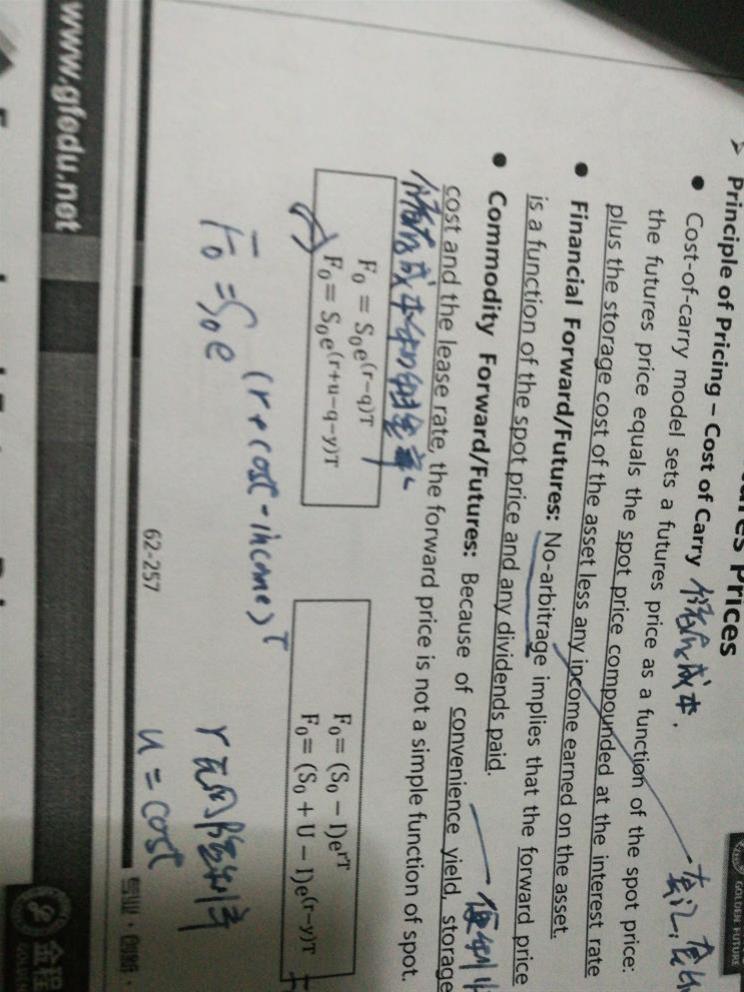 ures Prices
Principle of Pricing – Cost of Carry 储存成本.
• Cost-of-carry model sets a futures price as a function of the spot price:
the futures price equals the spot price compounded at the interest rate
plus the storage cost of the asset less any income earned on the asset.
• Financial Forward/Futures: No-arbitrage implies that the forward price
is a function of the spot price and any dividends paid.
• Commodity Forward/Futures: Because of convenience yield, storage
cost and the lease rate, the forward price is not a simple function of spot.
F₀ = S₀e^(r−q)T
F₀ = S₀e^(r+u−q−y)T
F₀ = (S₀ − I)e^rT
F₀ = (S₀ + U − I)e^(r−y)T
F₀ = S₀e^(r+cost-income)T
r 无风险利率
u = cost
62-257
专业·创新·
www.gfedu.net
金程
GOLDEN
GOLDEN FUTURE